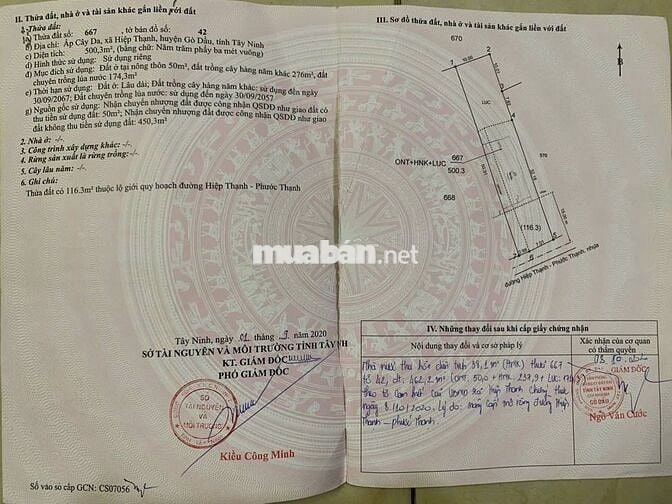 II. Thửa đất, nhà ở và tài sản khác gắn liền với đất
1. Thửa đất:
a) Thửa đất số: 667 tờ bản đồ số: 42
b) Địa chỉ: Ấp Cây Da, xã Hiệp Thạnh, huyện Gò Dầu, tỉnh Tây Ninh
c) Diện tích: 500,3m², (bằng chữ: Năm trăm phẩy ba mét vuông)
d) Hình thức sử dụng: Sử dụng riêng
đ) Mục đích sử dụng: Đất ở tại nông thôn 50m²; đất trồng cây hàng năm khác 276m², đất
chuyên trồng lúa nước 174,3m²
e) Thời hạn sử dụng: Đất ở: Lâu dài; Đất trồng cây hàng năm khác: sử dụng đến ngày
30/09/2067; Đất chuyên trồng lúa nước: sử dụng đến ngày 30/09/2057
g) Nguồn gốc sử dụng: Nhận chuyển nhượng đất được công nhận QSDĐ như giao đất có
thu tiền sử dụng đất: 50m²; Nhận chuyển nhượng đất được công nhận QSDĐ như giao
đất không thu tiền sử dụng đất: 450,3m²
2. Nhà ở: -/-.
3. Công trình xây dựng khác: -/-.
4. Rừng sản xuất là rừng trồng: -/-.
5. Cây lâu năm: -/-.
6. Ghi chú:
Thửa đất có 116.3m² thuộc lộ giới quy hoạch đường Hiệp Thạnh - Phước Thạnh
Tây Ninh, ngày 01 tháng 9 năm 2020
SỞ TÀI NGUYÊN VÀ MÔI TRƯỜNG TỈNH TÂY NINH
KT. GIÁM ĐỐC
PHÓ GIÁM ĐỐC
SỞ
TÀI NGUYÊN
VÀ
MÔI TRƯỜNG
Kiều Công Minh
Số vào sổ cấp GCN: CS07056
muaban.net
III. Sơ đồ thửa đất, nhà ở và tài sản khác gắn liền với đất
670
B
1
2
LUC
4
ONT+HNK+LUC
667
500.3
576
668
(116.3)
7.01
đường Hiệp Thạnh - Phước Thạnh, nhựa
IV. Những thay đổi sau khi cấp giấy chứng nhận
Nội dung thay đổi và cơ sở pháp lý
Xác nhận của cơ quan
có thẩm quyền
Nhà nước thu hồi diện tích 38,1m² (HNK) thửa 667
tờ 42, dt: 462,2m²
ngày 8/10/2020. Lý do: nâng cấp mở rộng đường Hiệp
Thạnh - Phước Thạnh.
GIÁM ĐỐC
TỈNH TÂY NINH
GÒ DẦU
Ngô Văn Cước